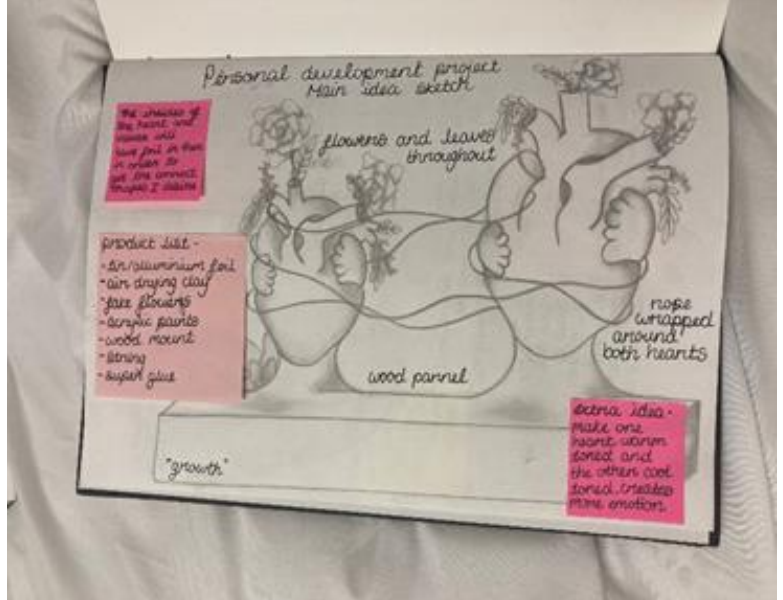 Personal development project
Main idea sketch
the insides of
the heart and
valves will
have foil in them
in order to
get the correct
shapes I desire
flowers and leaves
throughout
product list -
- tin/alluminium foil
- air drying clay
- fake flowers
- acrylic paints
- wood mount
- string
- super glue
rope
wrapped
around
both hearts
wood pannel
"growth"
extra idea -
make one
heart warm
toned and
the other cool
toned, creates
more emotion